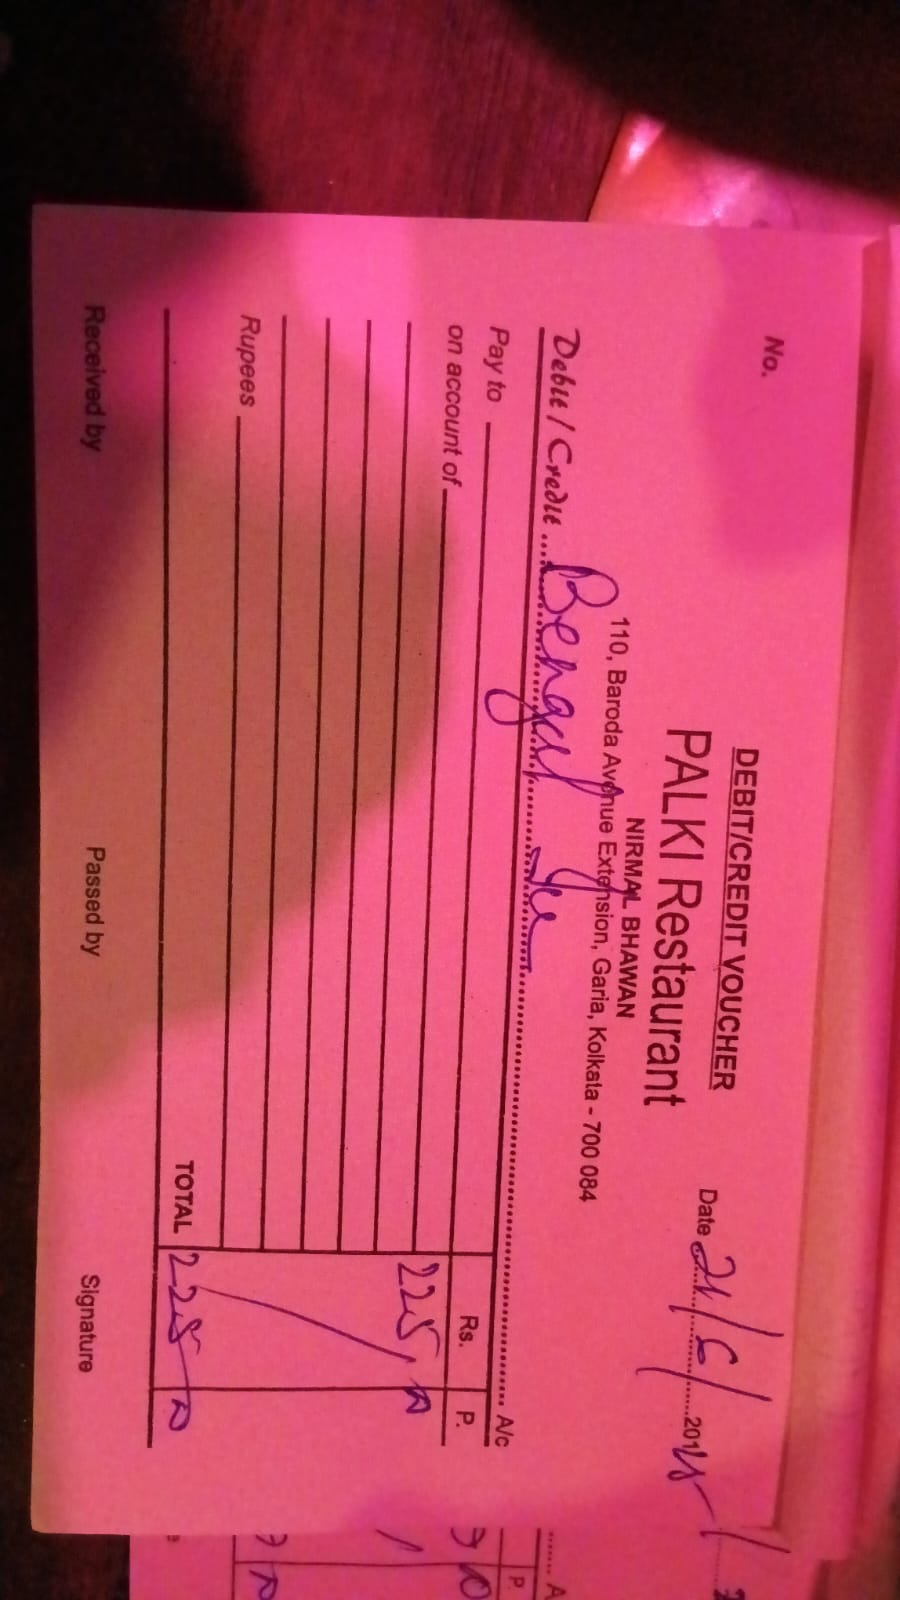 No.
DEBIT/CREDIT VOUCHER
PALKI Restaurant
NIRMAL BHAWAN
110, Baroda Avenue Extension, Garia, Kolkata - 700 084
Date 21/6/201
Debit / Credit Bengal A/c
Pay to
on account of Rs. P.
225,
Rupees
TOTAL 225
Received by Passed by Signature